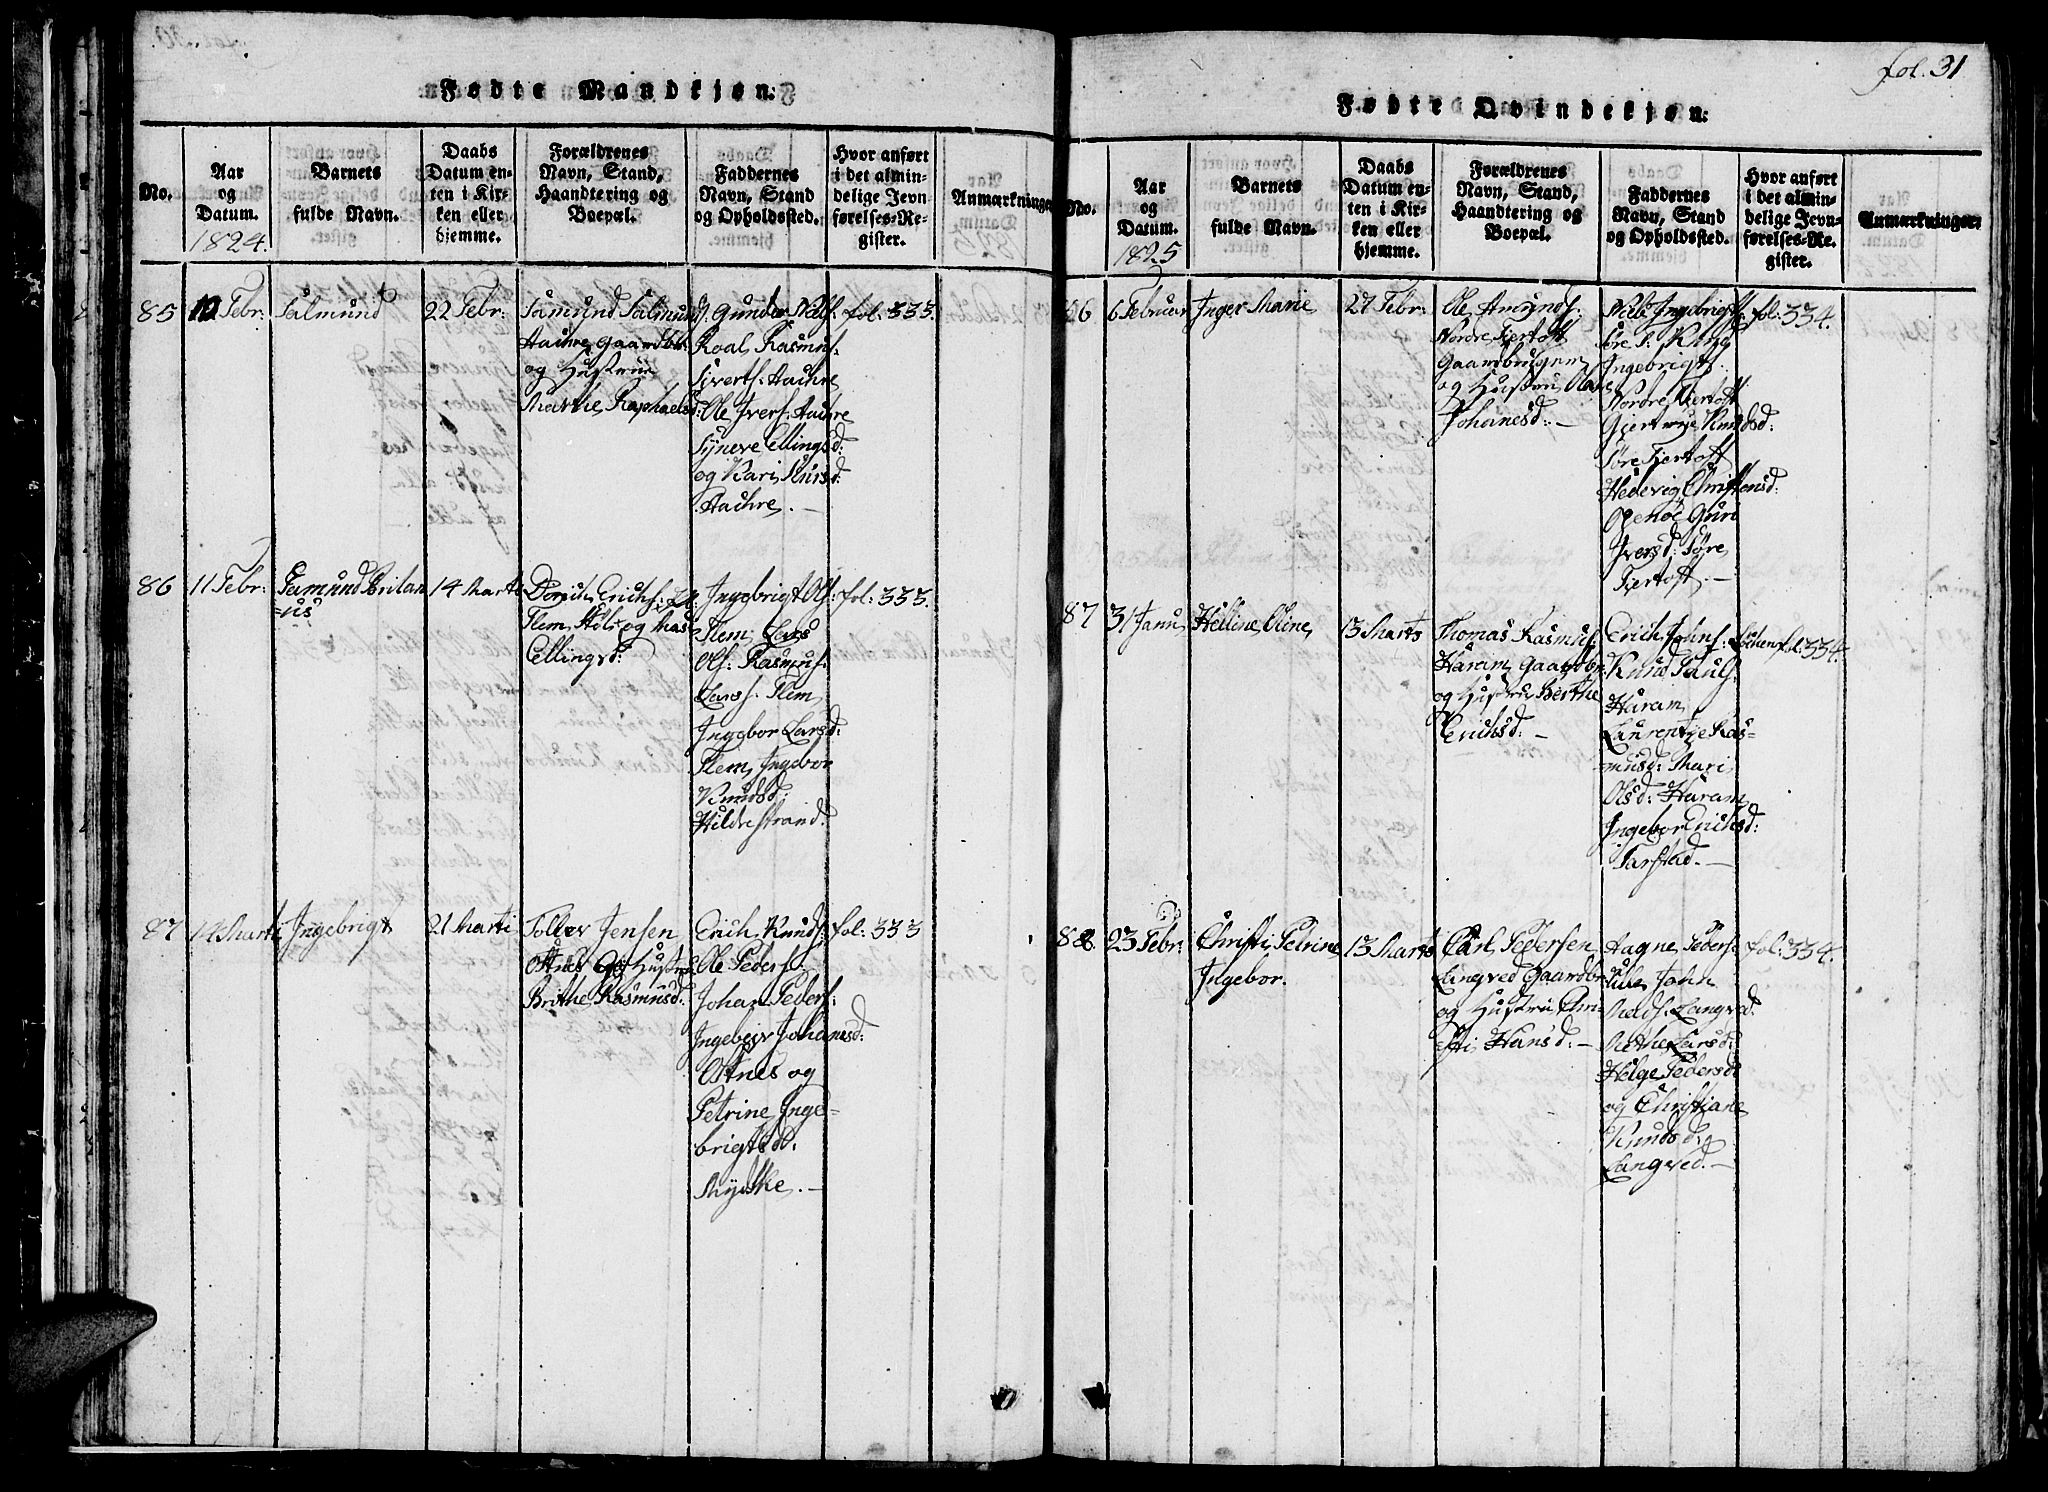 fol. 31
Fødte Mandkjøn.
No.
Aar
og
Datum.
1824.
Barnets
fulde Navn.
Daabs
Datum en-
ten i Kir-
ken eller
hjemme.
Forældrenes
Navn, Stand,
Haandtering og
Boepæl.
Faddernes
Navn, Stand
og Opholdssted.
Hvor anført
i det almin-
delige Jevn
førelses-Re-
gister.
Anmærkninger
85
10 Febr:
Salmund
22 Febr:
Samund Salmunds.
Aachre, Gaardbr:
og Hustrue
Marthe Raphaelsd:
Gunder Nils:
Roal Rasmus:
Sjverts: Aachre
Ole Ivers: Aachre
Synere Ellingsd:
og Kari Knusd:
Aachre. —
fol: 333.
86
11 Febr:
14 Marti
Erichs:
Flem, og
Ellingsd:
Ingebrigt Ols:
Flem, Lars
Ols: Rasmus:
Lars: Flem,
Ingebor Larsd:
Flem, Ingebor
Knudsd:
Hildrestrand.
fol: 333.
87
14 Marti
Ingebrigt
21 Marti
Tollev Jensen
Østnes og Hustrue
Brithe Rasmusd:
Erich Knuds:
Ole Peders:
Johan Peders:
Johannesd:
Østnes og
Petrine Inge-
brigtsd:
Myhske. —
fol: 333
Fødte Qvindekjøn.
No.
Aar
og
Datum.
1825
Barnets
fulde Navn.
Daabs
Datum en-
ten i Kir-
ken eller
hjemme.
Forældrenes
Navn, Stand,
Haandtering og
Boepæl.
Faddernes
Navn, Stand
og Opholdssted.
Hvor anført
i det almin-
delige Jevn-
førelses-Re-
gister.
Anmærkninger
86
6 Februar
Inger Marie
27 Febr:
Ole Amunds:
Nordre Fiertoft
Gaardbruger
og Hustru
Johanesd: —
Nils Ingebrigts:
Ingebrigts.
Nordre Fiertoft
Knudsd:
Søre Fiertoft
Hedevig Christensd:
Guri
Iversd: Søre
Fiertoft. —
fol: 334.
87
31 Janu
Helline Oline
13 Marts
Thomas Rasmus:
Haram, Gaardbr:
og Hustrue Berthe
Erichsd: —
Erich Johns:
Knud Pauls:
Haram,
Laurentze Ras-
musd: Mari
Olsd: Haram,
Ingebor Erichsd:
Tarstad. —
fol: 334.
88.
23 Febr:
Christi Petrine
Ingebor.
13 Marts
Carl Pedersen
Langved Gaardbr:
og Hustrue Chri-
sti Hansd: —
Aagne Peders:
John
Langved.
Methe Larsd:
Helge Pedersd
og Christiane
Knudsd:
Langved. —
fol: 334.